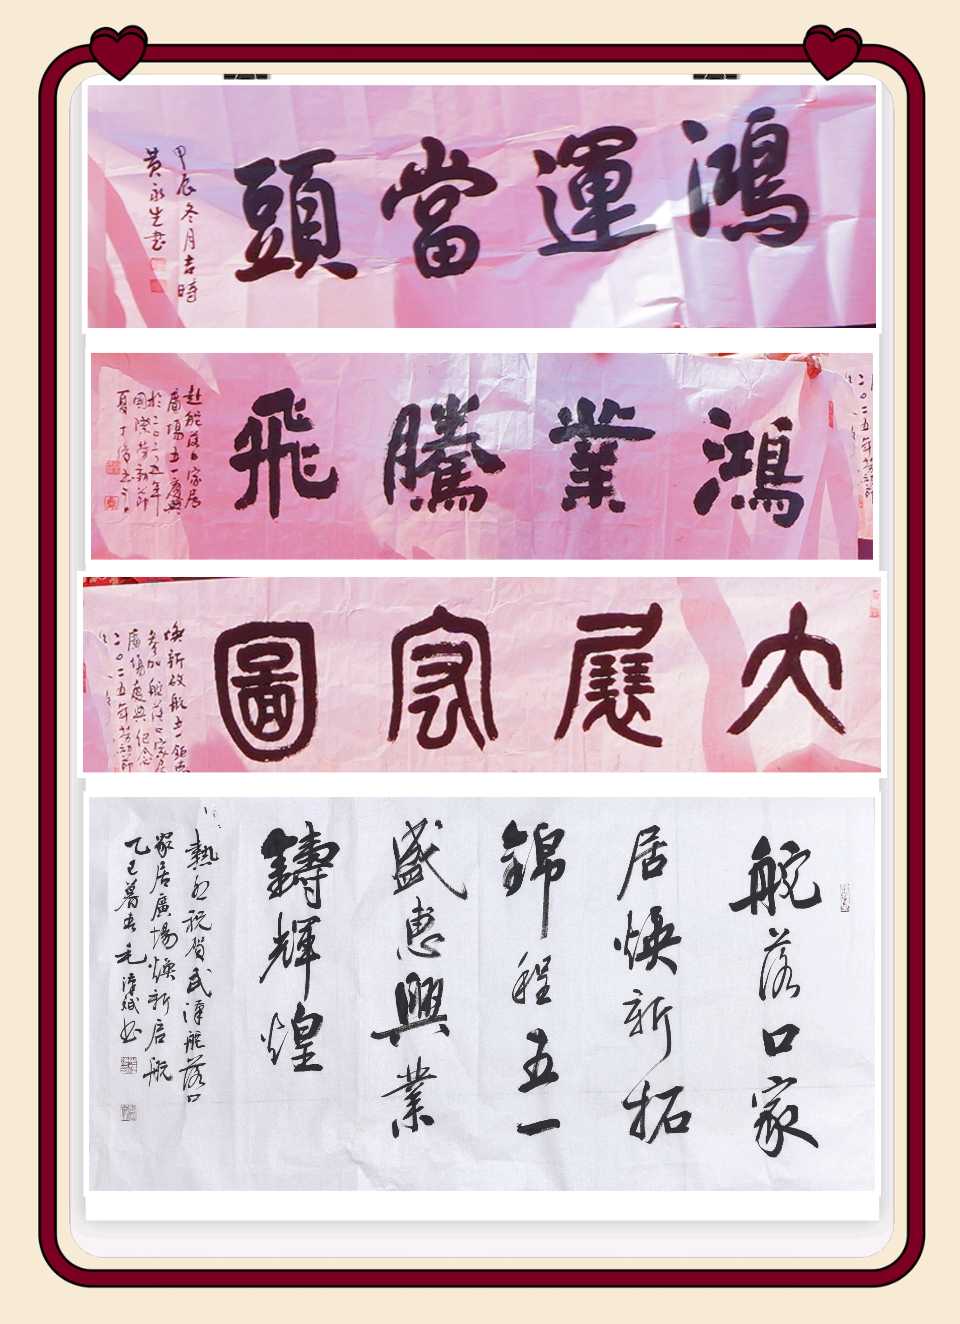 鴻運當頭
甲辰冬月吉時
黄永生書
鴻業騰飛
赴舵落口家居
廣場五一慶典
於二〇二五年
國際勞動節
二〇二五年勞動節
大展宏圖
煥新啟航五一錦
參加舵落口家居
廣場慶典紀念
二〇二五年勞動節
舵落口家
居煥新拓
錦程五一
盛惠興業
鑄輝煌
熱烈祝賀武漢舵落口
家居廣場煥新启航
乙巳暮春毛